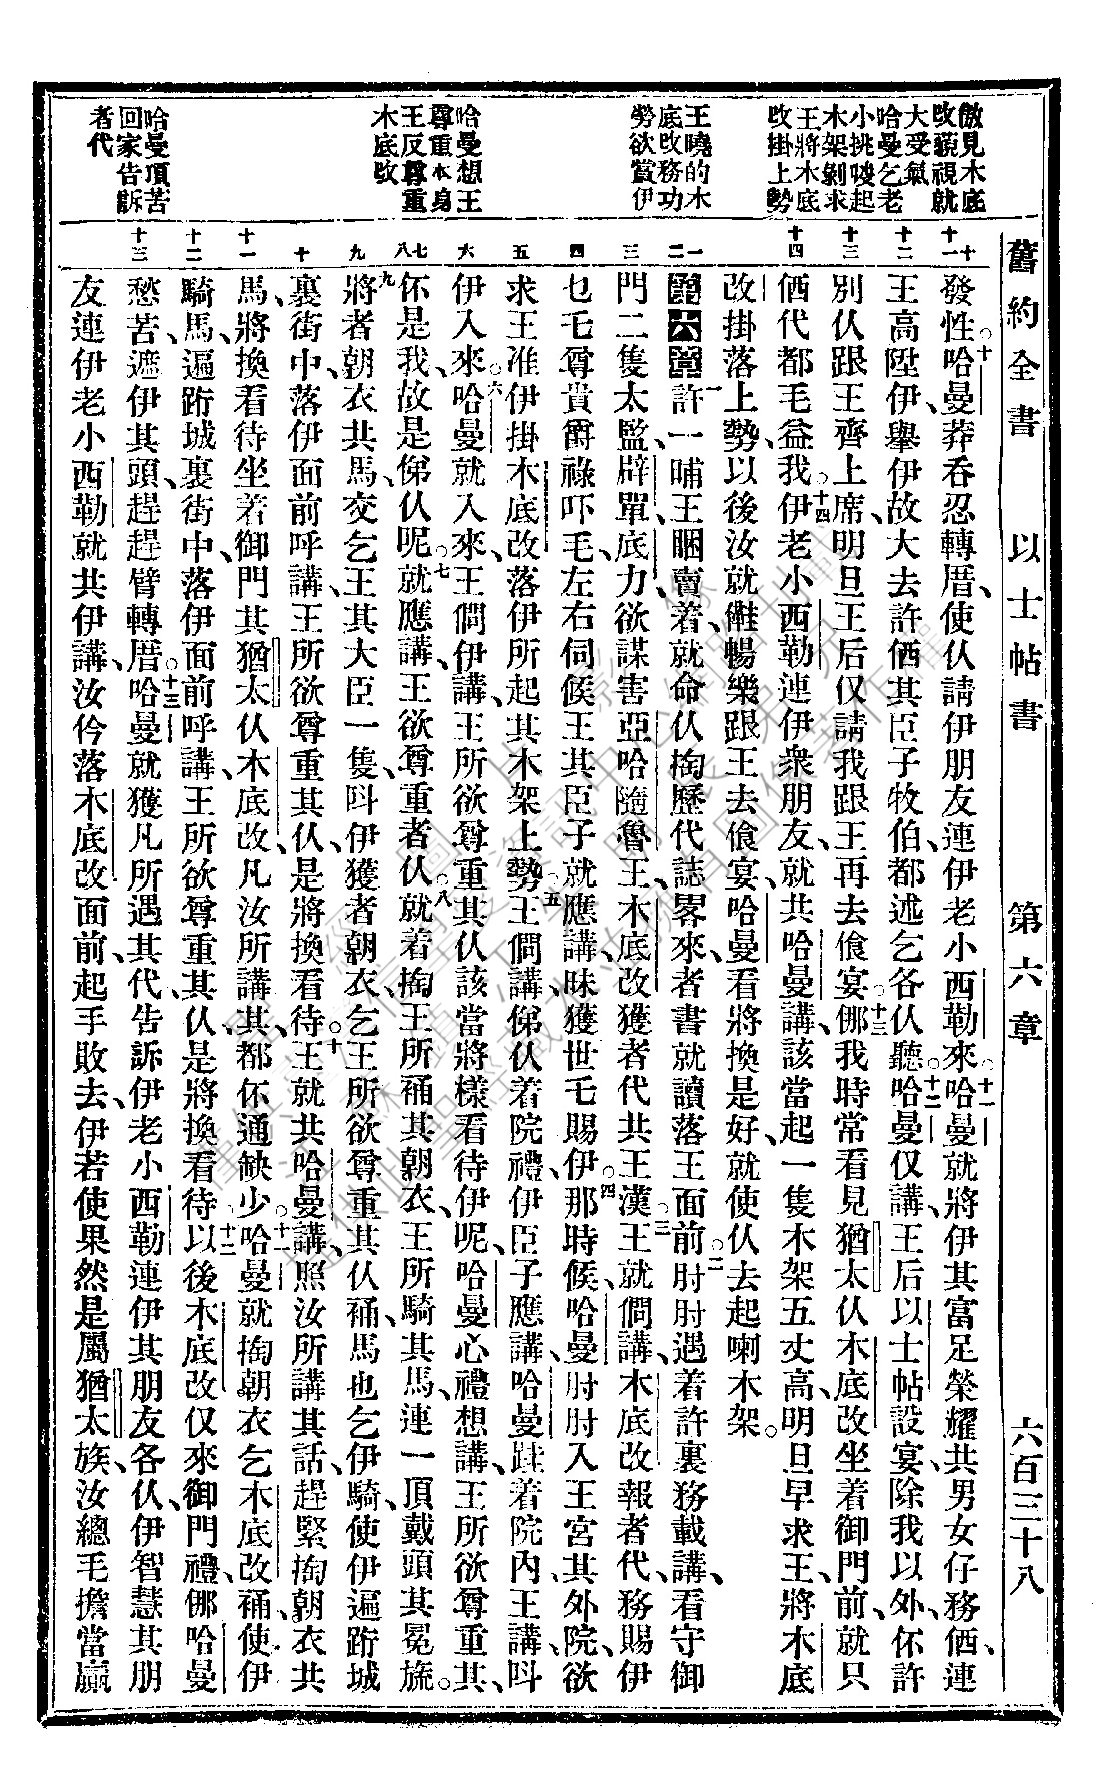 舊約全書 以士帖書 第六章 六百三十八
傲見木底
改藐視就
大受氣
哈曼乞老
小挑唆起
木架剝求
王將木底
改掛上勢
王曉的木
底改務功
勞欲賞伊
哈曼想王
尊重本身
王反尊重
木底改
哈曼項苦
回家告訴
者代
十 十一 十二 十三 十四 一 二 三 四 五 六 七 八 九 十 十一 十二 十三
發性。十哈曼莽吞忍轉厝、使仈請伊朋友連伊老小西勒來。十一哈曼就將伊其富足榮耀共男女仔務偌連
王高陞伊、舉伊故大去許偌其臣子牧伯、都述乞各仈聽。十二哈曼仅講、王后以士帖設宴、除我以外、伓許
別仈跟王齊上席、明旦王后仅請我跟王再去飡宴。十三㑚我時常看見猶太仈木底改坐着御門前、就只
偌代都毛益我。十四伊老小西勒連伊衆朋友、就共哈曼講、該當起一隻木架五丈高、明旦早求王、將木底
改掛落上勢、以後汝就䧳暢樂跟王去飡宴、哈曼看將換是好、就使仈去起喇木架。
第六章 一許一晡王睏賣着、就命仈掏歷代誌畧來、者書就讀落王面前。二肘肘遇着許裏務載講、看守御
門二隻太監、辟單、底力、欲謀害亞哈隨魯王、木底改獲者代共王漢。三王就僴講、木底改報者代、務賜伊
乜乇尊貴爵祿吓毛、左右伺候王其臣子就應講、昧獲世乇賜伊。四那時候哈曼肘肘入王宮其外院、欲
求王准伊掛木底改落伊所起其木架上勢。五王僴講、俤仈着院禮、伊臣子應講、哈曼蹝着院內、王講、呌
伊入來。六哈曼就入來、王僴伊講、王所欲尊重其仈該當將樣看待伊呢、哈曼心禮想講、王所欲尊重其、
伓是我、故是俤仈呢。七就應講、王欲尊重者仈。八就着掏王所䘄其朝衣、王所騎其馬、連一頂戴頭其冕旒。
九將者朝衣共馬、交乞王其大臣一隻、呌伊獲者朝衣、乞王所欲尊重其仈䘄、馬也乞伊騎、使伊遍跨城
裏街中、落伊面前呼講、王所欲尊重其仈、是將換看待。十王就共哈曼講、照汝所講其話、趕緊掏朝衣共
馬、將換看待坐着御門其猶太仈木底改、凡汝所講其、都伓通缺少。十一哈曼就掏朝衣乞木底改䘄、使伊
騎馬、遍跨城裏街中、落伊面前呼講、王所欲尊重其仈、是將換看待。十二以後木底改仅來御門禮、㑚哈曼
愁苦、遮伊其頭、趕趕臂轉厝。十三哈曼就獲凡所遇其代、告訴伊老小西勒連伊其朋友各仈、伊智慧其朋
友連伊老小西勒就共伊講、汝伶落木底改面前、起手敗去、伊若使果然是屬猶太族、汝總毛擔當贏